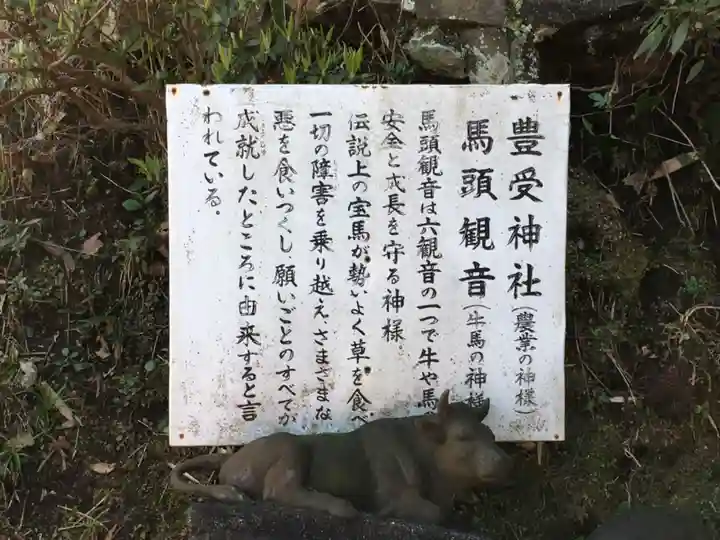 豊受神社(農業の神様)
馬頭観音(牛馬の神様
馬頭観音は六観音の一つで牛や馬
安全と成長を守る神様
伝説上の宝馬が勢いよく草を食べ
一切の障害を乗り越え、さまざまな
悪を食いつくし、願いごとのすべてが
成就したところに由来すると言
われている。